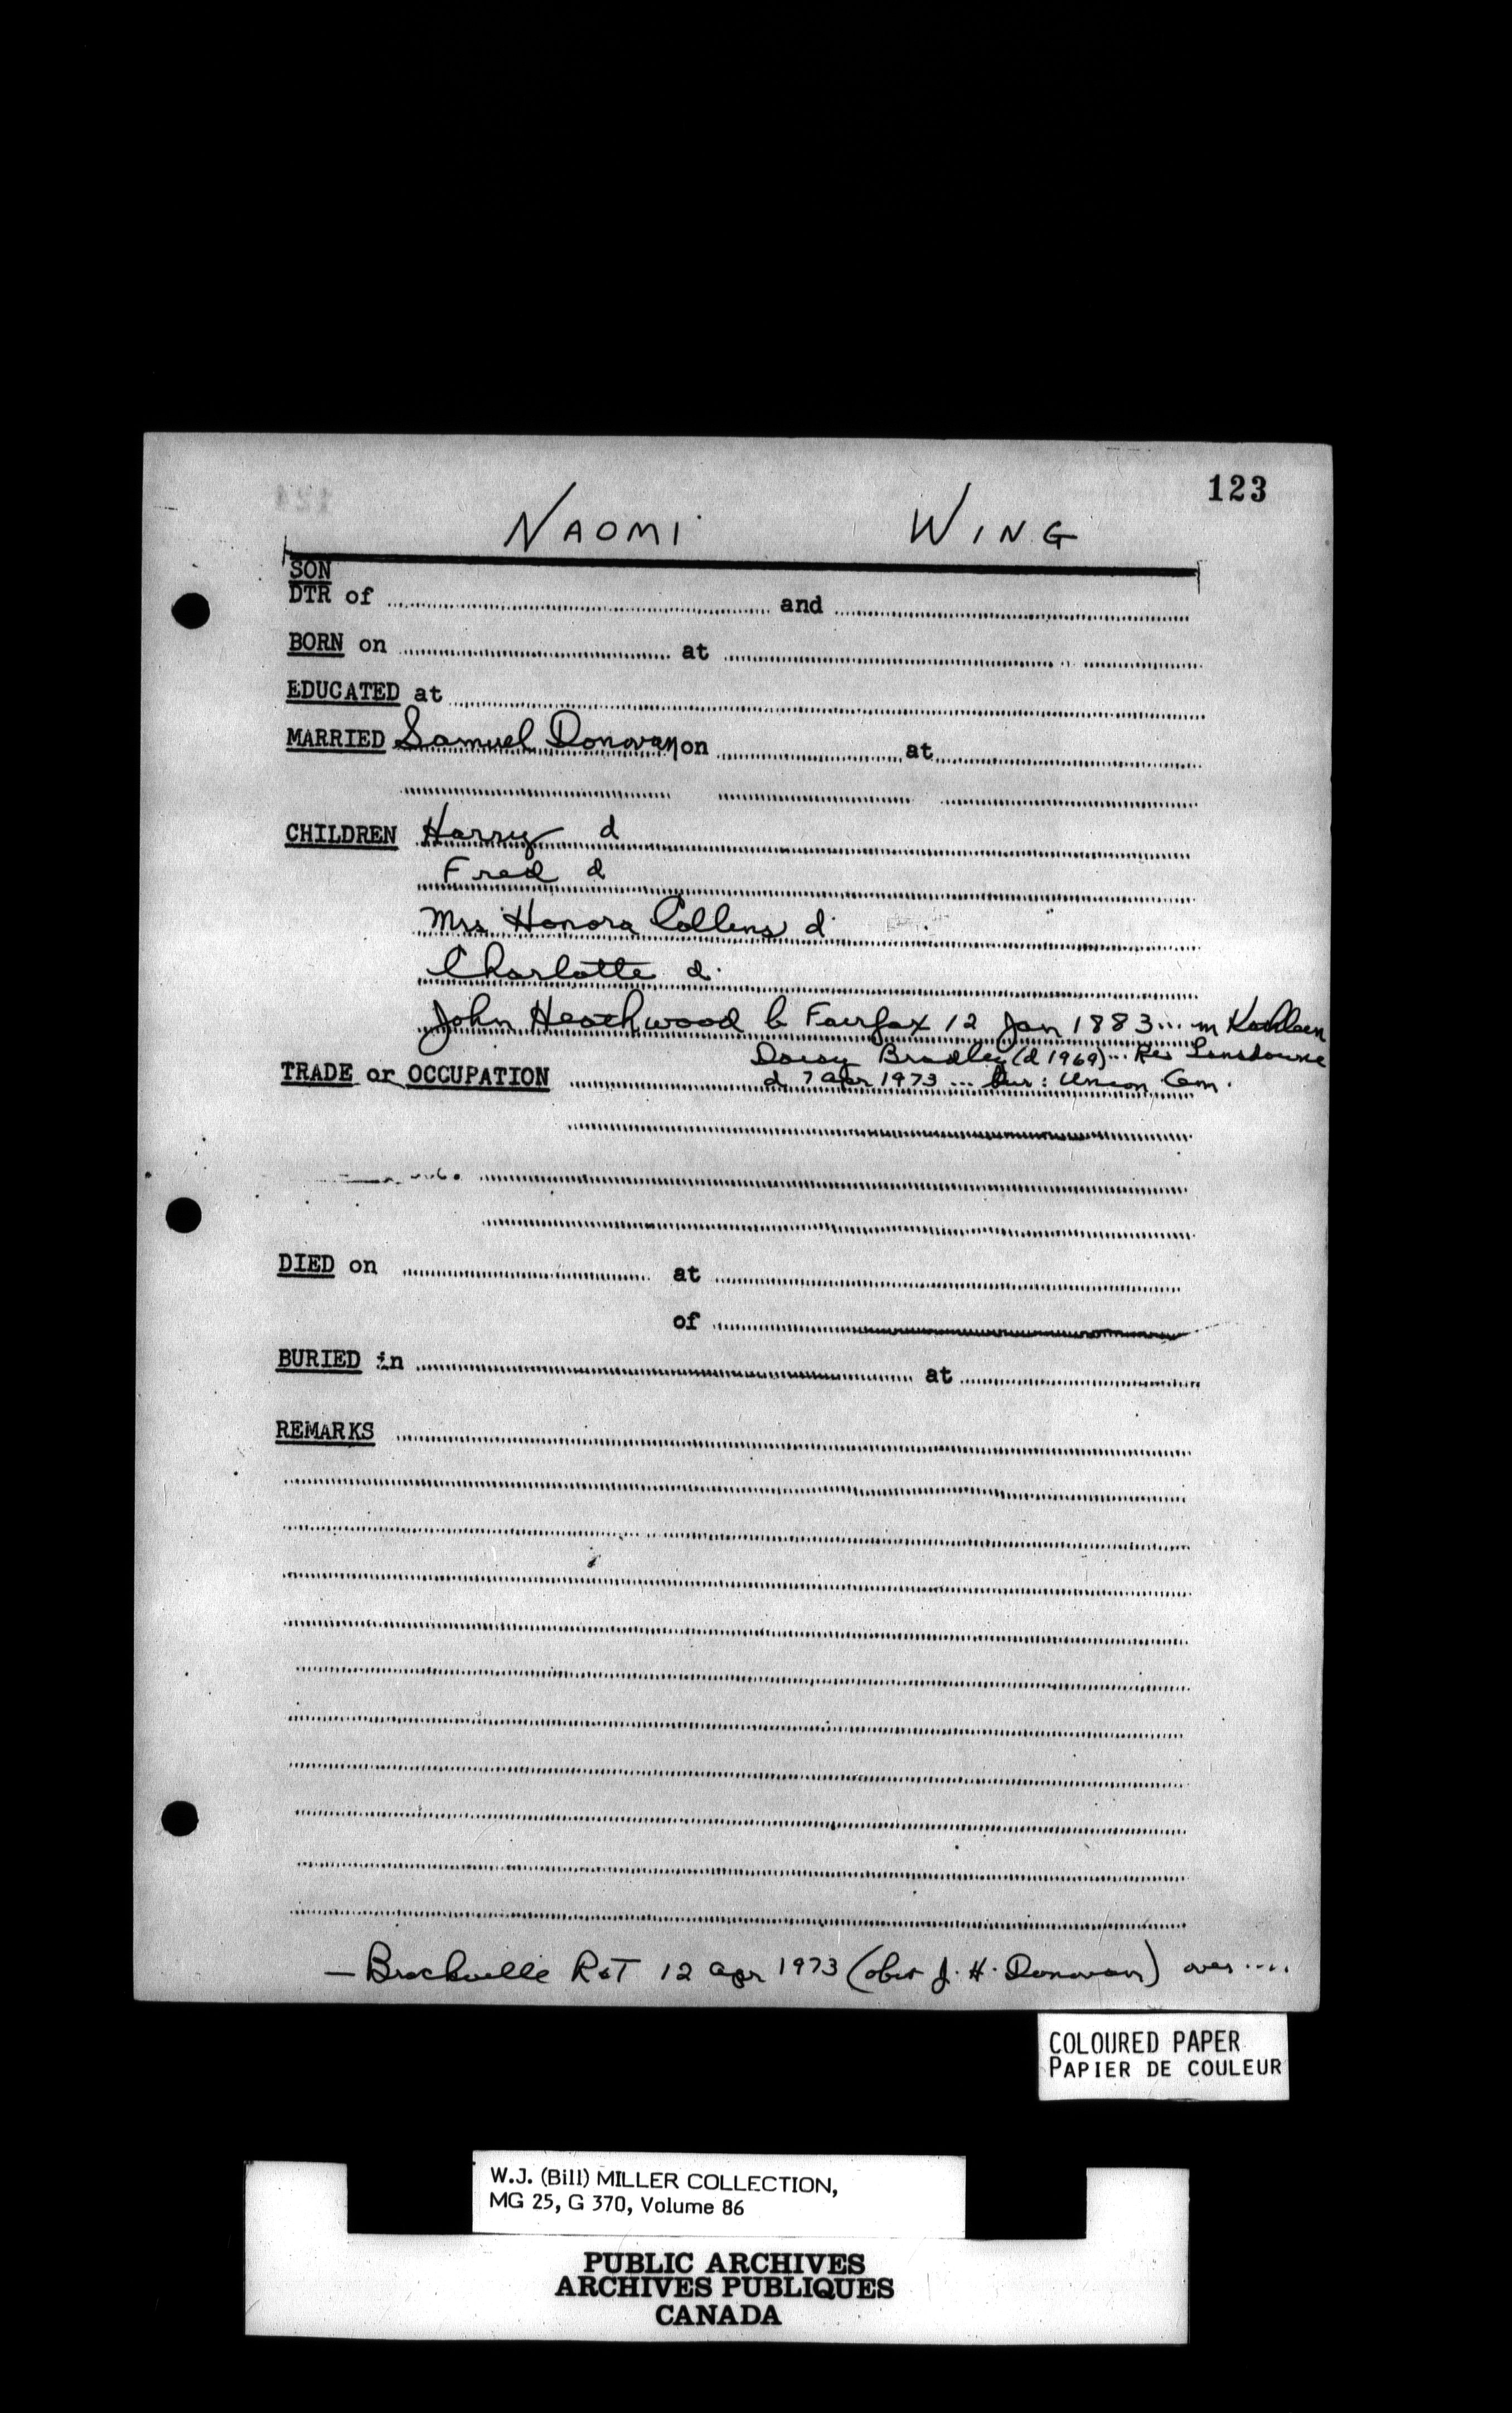 123
NAOMI WING
SON
DTR of and
BORN on at
EDUCATED at
MARRIED Samuel Donovan on at
CHILDREN Harry d
Fred d
Mrs Honora Collens d
Charlotte d.
John Heathwood b Fairfax 12 Jan 1883... m Kathleen
Daisy Bradley (d 1969)... Res Lansdowne
TRADE or OCCUPATION d 7 Apr 1973 ... bur: Union Cem.
DIED on at
of
BURIED in at
REMARKS
— Brockville R&T 12 Apr 1973 (obit J. H. Donovan) over ....
COLOURED PAPER
PAPIER DE COULEUR
W.J. (Bill) MILLER COLLECTION,
MG 25, G 370, Volume 86
PUBLIC ARCHIVES
ARCHIVES PUBLIQUES
CANADA